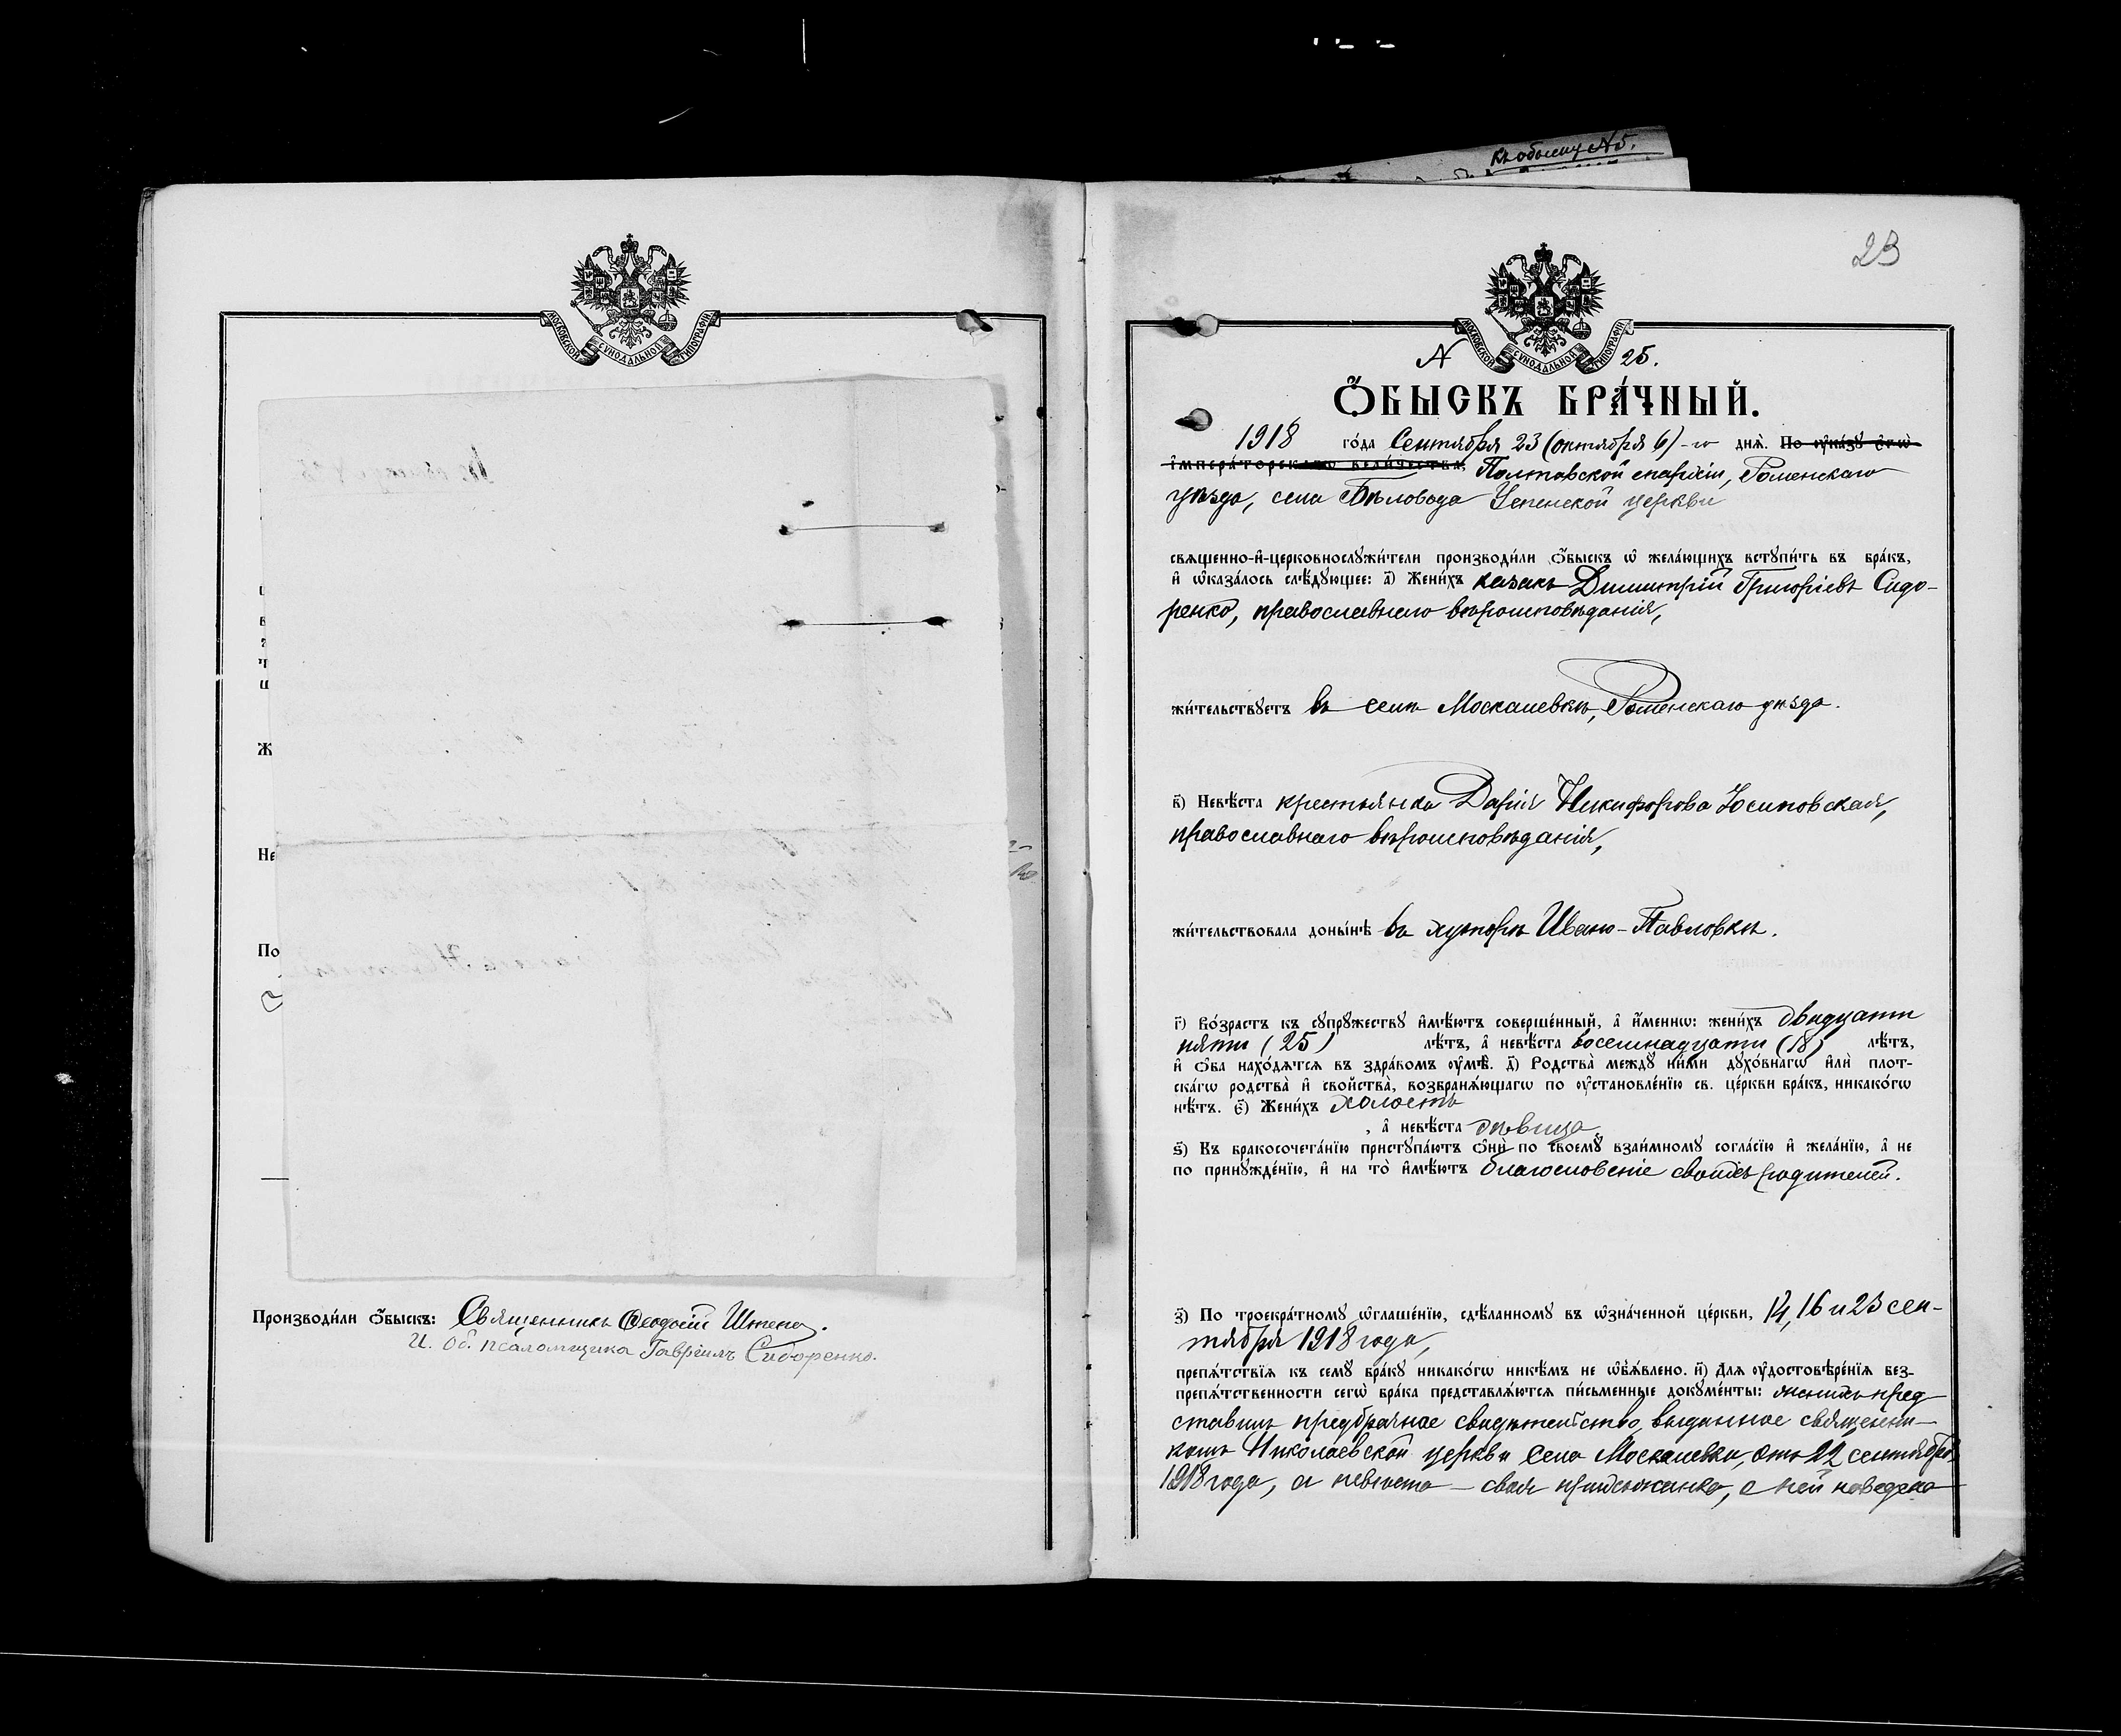 Къ обыску №5.
МОСКОВСКОЙ СѴНОДАЛЬНОЙ ТИПОГРАФІИ
Ж
Не
По
Производи́ли ѻ҆́быскъ: Священникъ Ѳеодосій
И. об. псаломщика Гавріилъ Сидоренко.
23
МОСКОВСКОЙ СѴНОДАЛЬНОЙ ТИПОГРАФІИ
№ 25.
Ѻ҆́БЫСКЪ БРА́ЧНЫЙ.
1918 го́да Сентября 23 (октября 6)-го днѧ̀. По ᲂу҆ка́зꙋ є҆гѡ̀
і҆мпера́торскагѡ вели́чества, Полтавской епархіи, Роменскаго
уѣзда, села Бѣловода Успенской церкви
свѧщенно-и҆-церковнослꙋжи́тели производи́ли ѻ҆́быскъ ѡ҆ жела́ющихъ встꙋпи́ть въ бра́къ,
и҆ ѡ҆каза́лось слѣ́дꙋющее: а҃) Жени́хъ казакъ Димитрій Григоріевъ Сидо-
ренко, православнаго вѣроисповѣданія,
жи́тельствꙋетъ въ селѣ Москалевкѣ, Роменскаго уѣзда.
в҃) Невѣ́ста крестьянка Дарія Никифорова Юсиповская,
православнаго вѣроисповѣданія,
жи́тельствовала доны́нѣ въ хуторѣ Ивано-Павловкѣ.
г҃) Во́зрастъ къ сꙋпрꙋ́жествꙋ и҆мѣ́ютъ соверше́нный, а҆ и҆́меннѡ: жени́хъ двадцати
пяти (25) лѣ́тъ, а҆ невѣ́ста восемнадцати (18) лѣ́тъ,
и҆ ѻ҆́ба нахо́дѧтсѧ въ здра́вомъ ᲂу҆мѣ̀. д҃) Родства̀ междꙋ̀ ни́ми дꙋхо́внагѡ и҆лѝ плот-
ска́гѡ родства̀ и҆ сво́йства̀, возбранѧ́ющагѡ по ᲂу҆становле́нїю св. це́ркви бра́къ, никако́гѡ
нѣ́тъ. є҃) Жени́хъ холостъ
, а҆ невѣ́ста дѣвица
ѕ҃) Къ бракосочета́нїю пристꙋпа́ютъ ѻ҆нѝ по своемꙋ̀ взаи́мномꙋ согла́сїю и҆ жела́нїю, а҆ не
по принꙋжде́нїю, и҆ на то̀ и҆мѣ́ютъ благословеніе своихъ родителей.
з҃) По троекра́тномꙋ ѡ҆глаше́нїю, сдѣ́ланномꙋ въ ѡ҆зна́ченной це́ркви, 14, 16 и 23 сен-
тября 1918 года,
препѧ́тствїѧ къ семꙋ̀ бра́кꙋ никако́гѡ никѣ́мъ не ѡ҆б̾ѧ́влено. и҃) Длѧ ᲂу҆достовѣре́нїѧ без-
препѧ́тственности сегѡ̀ бра́ка представлѧ́ютсѧ пи́сьменные докꙋме́нты: женихъ пред
ставилъ предбрачное свидѣтельство, выданное священни-
комъ Николаевской церкви села Москалевки, отъ 22 сентября
1918 года, а невѣста - своя прихожанка, о ней наведена